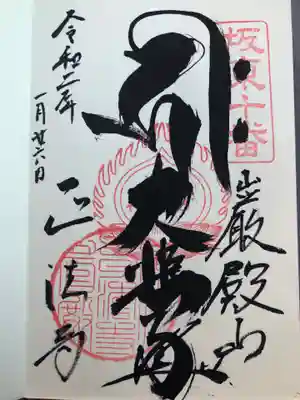 坂東十番
巌殿山
大悲尊
令和二年
一月廿六日
正法寺